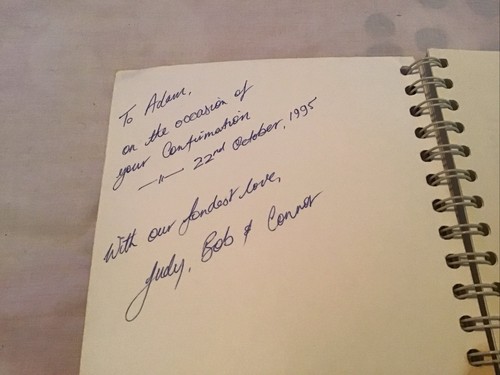 To Adam,
on the occasion of
your Confirmation
—"— 22nd October, 1995
With our fondest love,
Judy, Bob & Connor